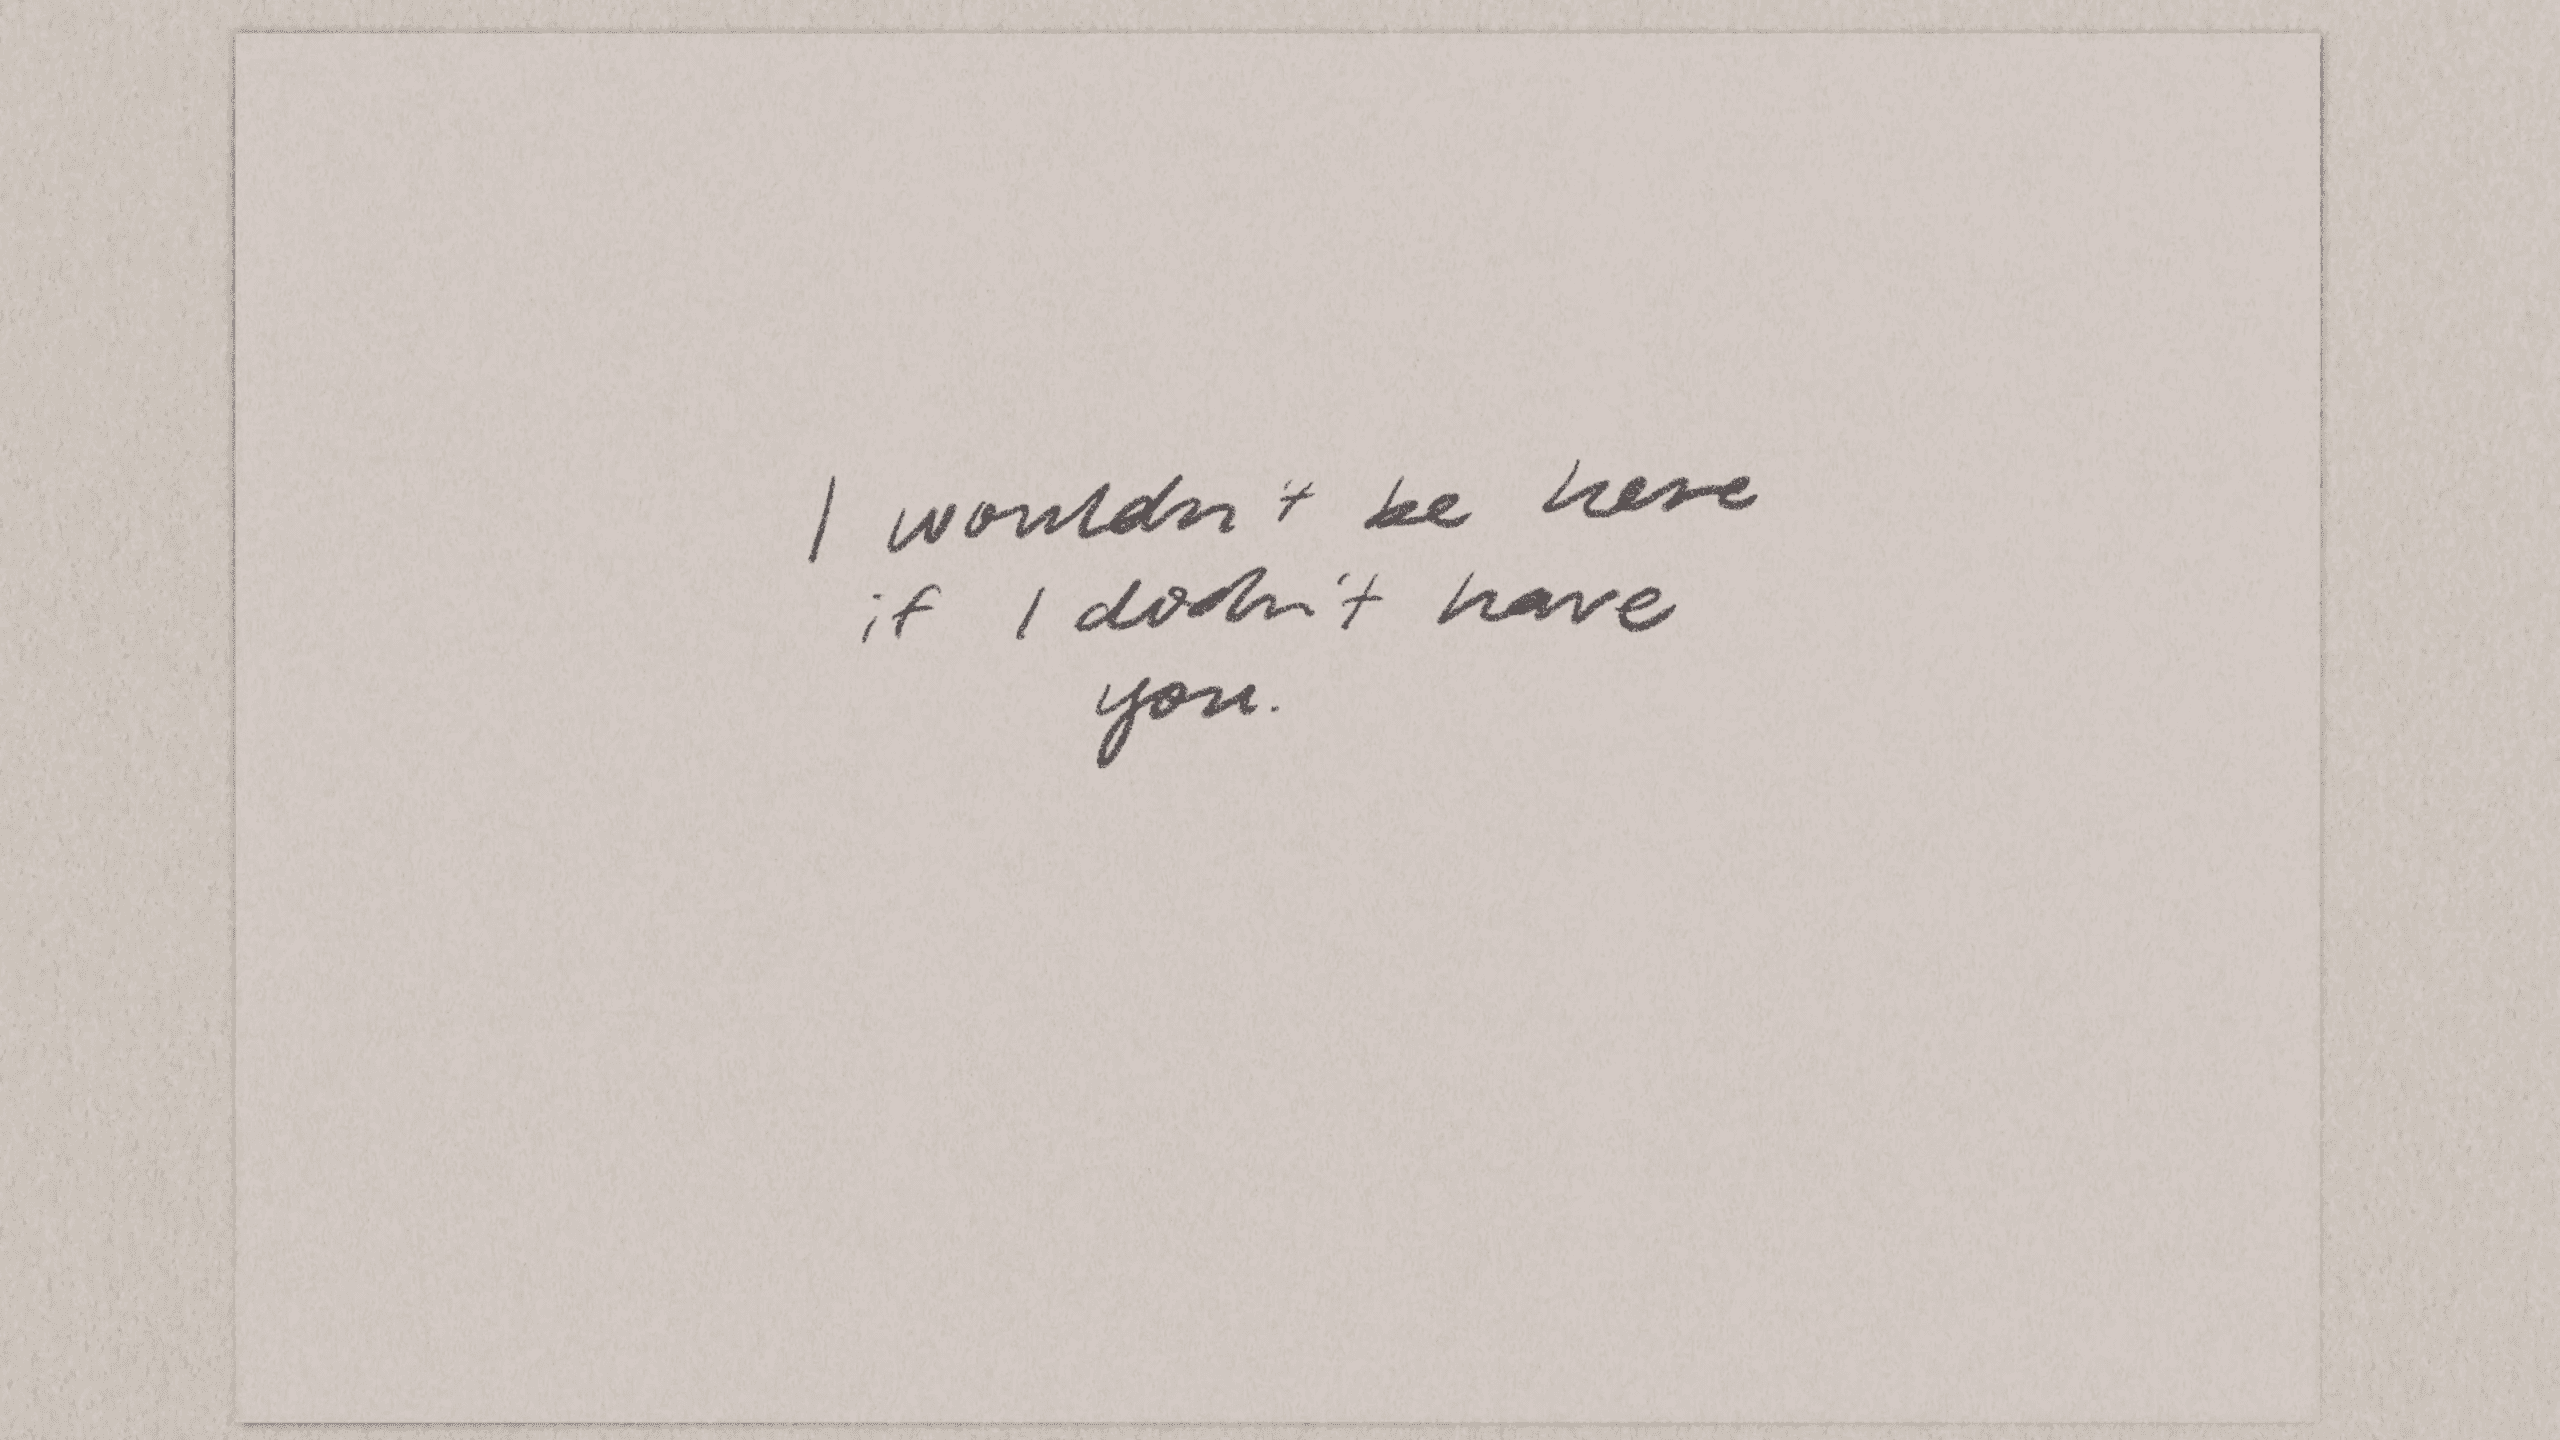 I wouldn't be here
if I dodn't have
you.